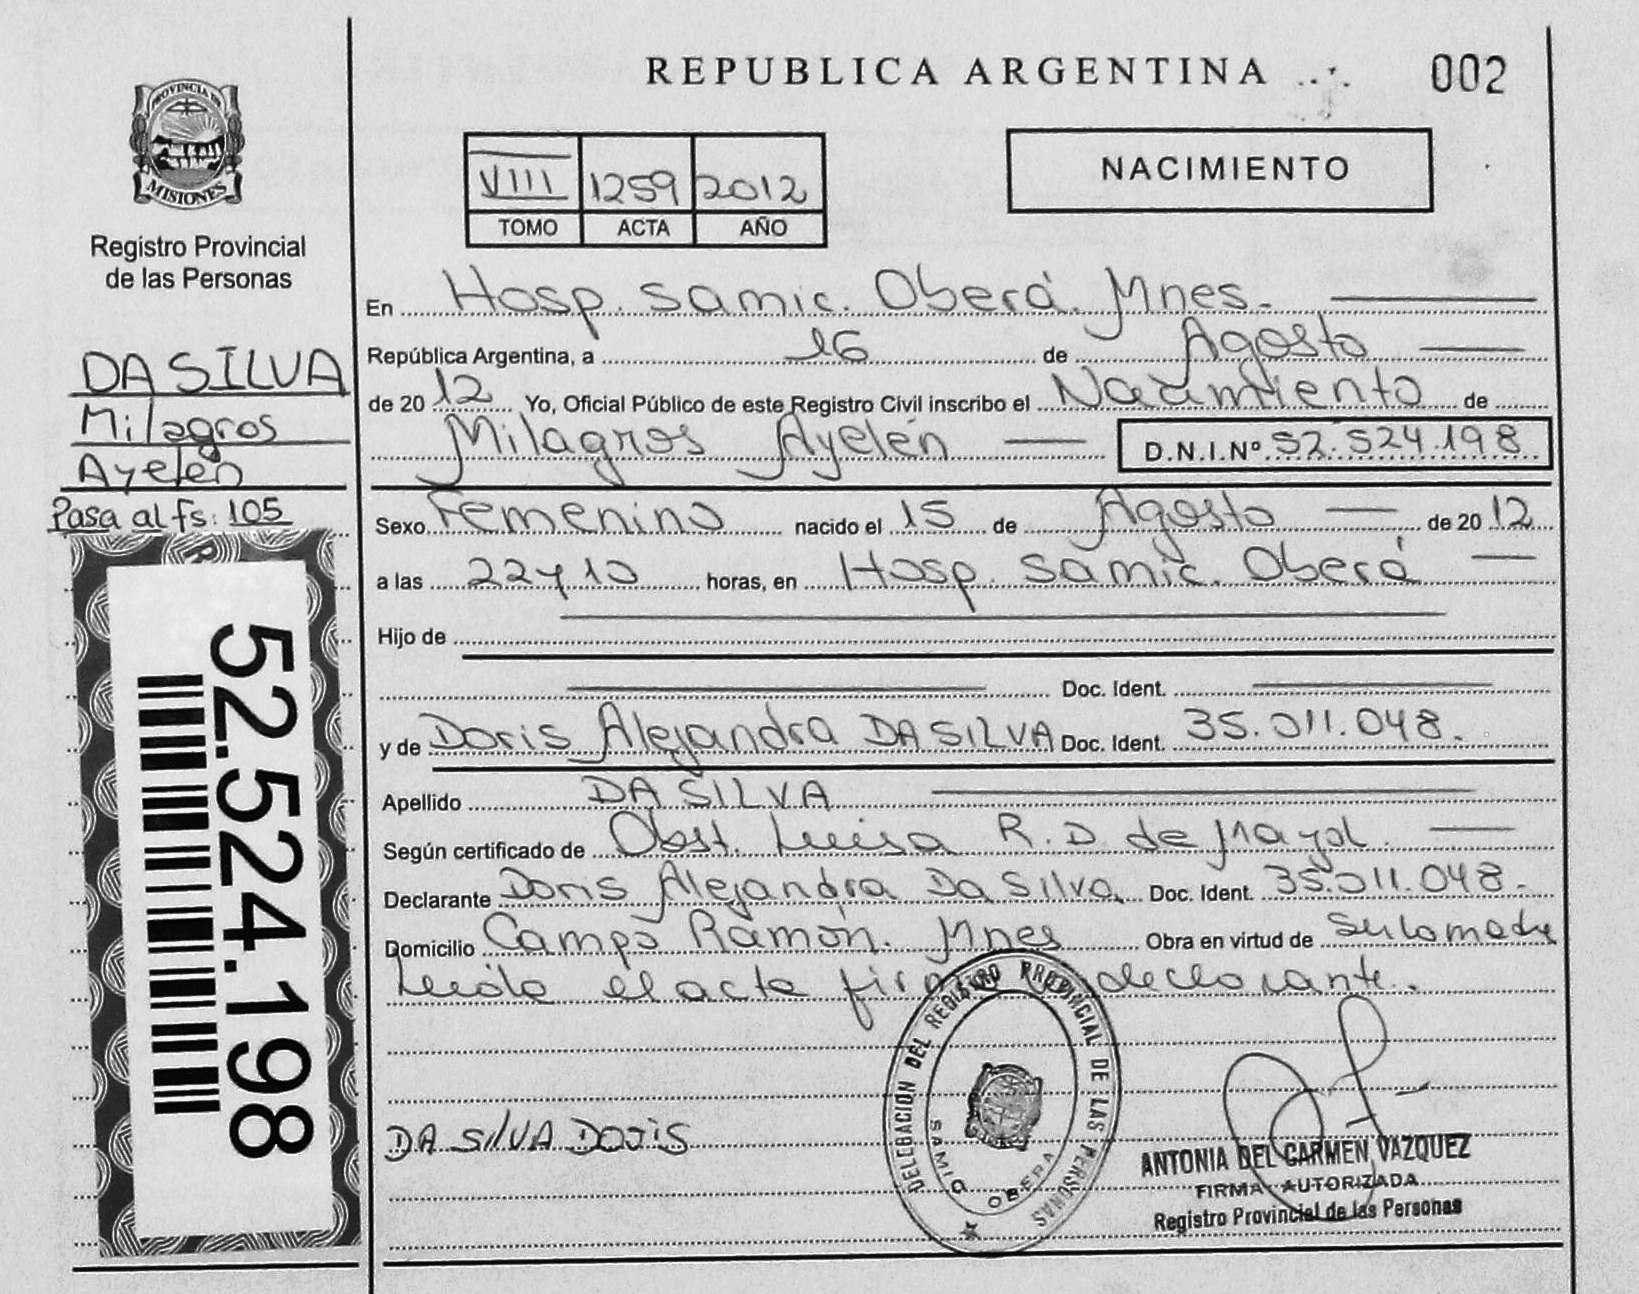 REPUBLICA ARGENTINA
002
PROVINCIA DE
MISIONES
Registro Provincial
de las Personas
VIII 1259 2012
TOMO ACTA AÑO
NACIMIENTO
DA SILVA
Milagros
Ayelén
Pasa al fs: 105
52.524.198
En Hosp. Samic. Oberá. Mnes.
República Argentina, a 16 de Agosto
de 2012 Yo, Oficial Público de este Registro Civil inscribo el Nacimiento de
Milagros Ayelén D.N.I.Nº 52.524.198
Sexo Femenino nacido el 15 de Agosto de 2012
a las 22y10 horas, en Hosp. Samic. Oberá
Hijo de
Doc. Ident.
y de Doris Alejandra DA SILVA Doc. Ident. 35.011.048.
Apellido DA SILVA
Según certificado de Obst. Luisa R. D. de Mayol.
Declarante Doris Alejandra Da Silva. Doc. Ident. 35.011.048.
Domicilio Campo Ramón. Mnes Obra en virtud de ser la madre
Leída el acta firma declarante.
DA SILVA DORIS
DELEGACION DEL REGISTRO PROVINCIAL DE LAS PERSONAS
SAMIC OBERA
ANTONIA DEL CARMEN VAZQUEZ
FIRMA AUTORIZADA
Registro Provincial de las Personas